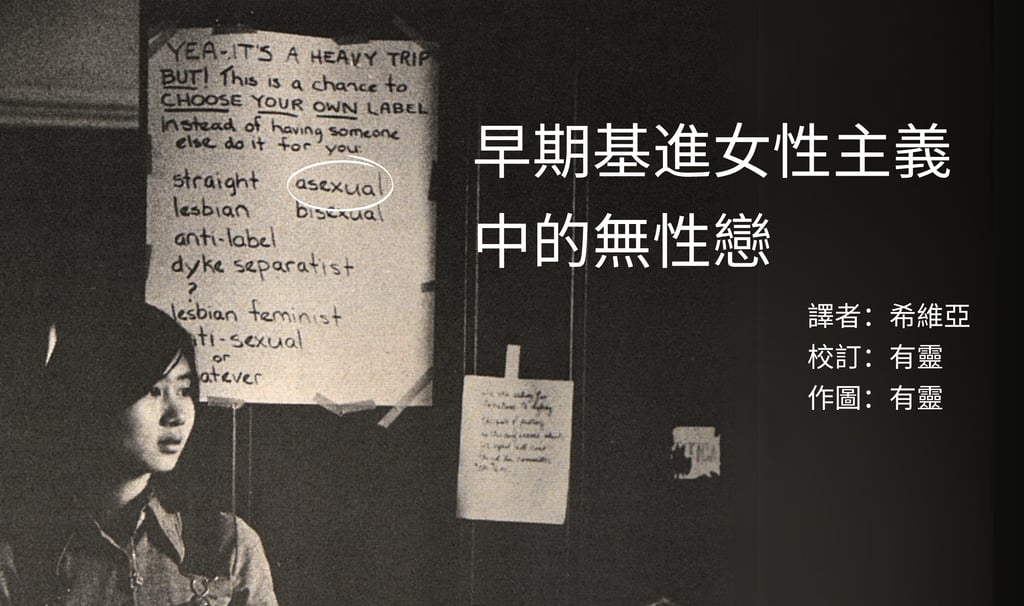 YEA-IT'S A HEAVY TRIP
BUT! This is a chance to
CHOOSE YOUR OWN LABEL
instead of having someone
else do it for you:
straight asexual
lesbian bisexual
anti-label
dyke separatist
?
lesbian feminist
ti-sexual
or
atever
早期基進女性主義
中的無性戀
譯者：希維亞
校訂：有靈
作圖：有靈